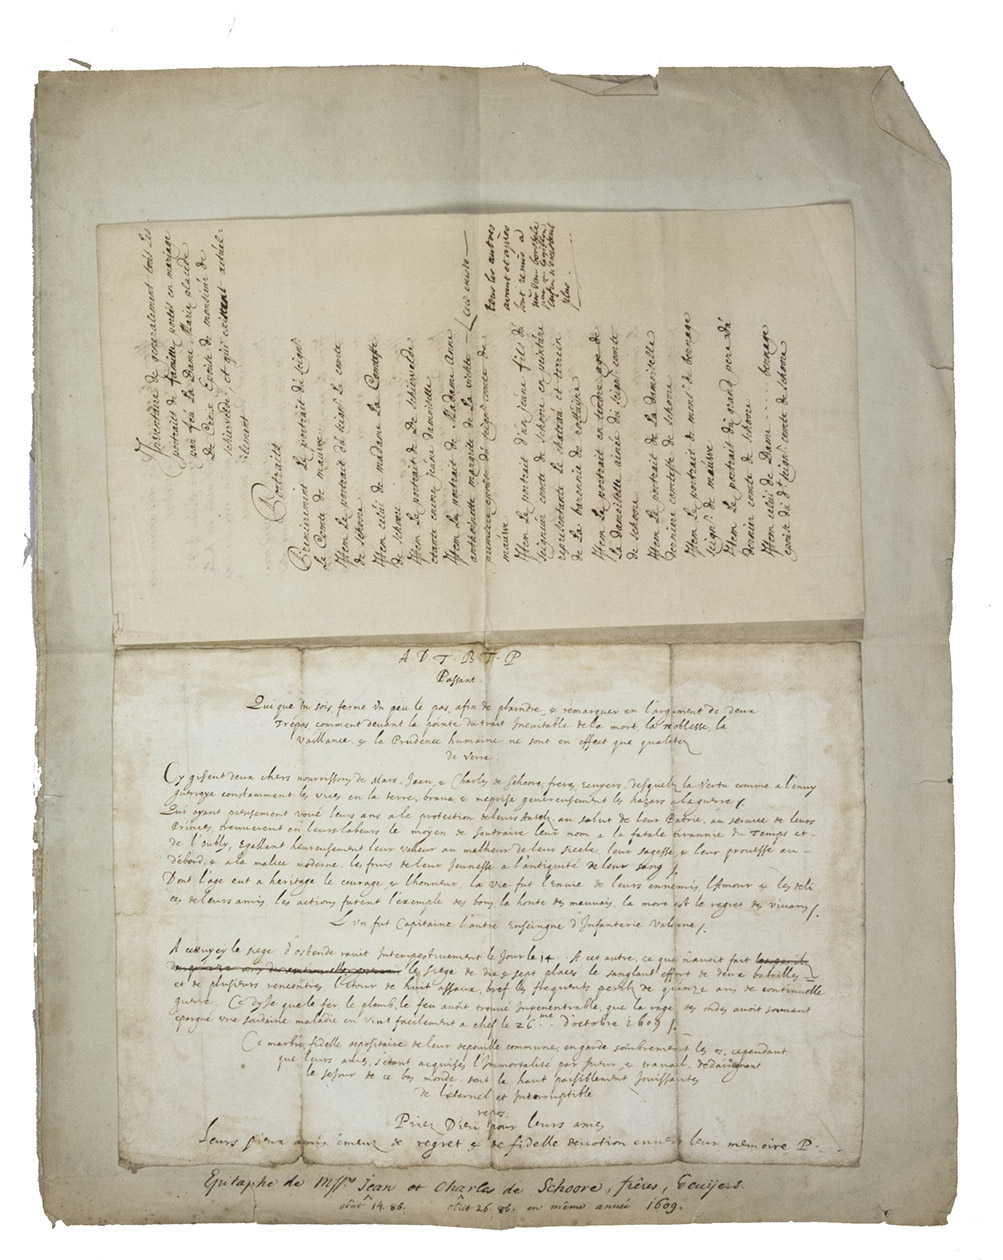 Inventaire de generalement tous les
portraits de famille portés en mariage
par feu La Dame Marie placide
De Croix Epoûse de monsieur de
schiervelde, et qui existent actüel-
:lement
Portraits
Premierement Le portrait dû Seigr
Le Comte de maûwe
Item Le portrait dû seigr Le comte
de schoore
Item celui de madame La Comtesse
de schoore
Item Le portrait de De Schiervelde
étante encore jeûne damoiselle
Item Le portrait de Madame Anne
anthoinette margûite de La vichte
premiere epoûse dû seignr comte de
maûwe
Ceci existe
Item Le portrait d'ûn jeûne fils dû
seigneur comte de schoore en peintûre
representante Le chateaû et terrein
de La baronie de
tous les autres
avant et après
sont remis a
Mr van
plus.
Item Le portrait en tendre age de
La damoiselle ainée dû seigr comte
de schoore
Item Le portrait de La damoiselle
derniere comtesse de schoore
Item Le portrait de monsr de bernage
seigr de maûwe
Item Le portrait dû grand pere dû
dernier comte de schoore
Item celui de Dame ..... bernage
epoûse dû dt seigr comte de schoore
A · D · T · B · T · P
Passant.
Qui que tu sois, ferme un peu le pas, afin de plaindre, & remarquer en l'argument de deux
Trépas, comment devant la pointe du trait Inevitable de la mort, la Noblesse, la
Vaillance, & la Prudence humaine ne sont en effect que qualitez
de verre.
Cy gisent deux chers nourrissons de Mars, Jean, & Charles de Schoore, freres, escuyers, desquels la Vertu comme a l'envy
guerroya constamment les vices en la terre, brava & meprisa genereusement les hazars a la guerre /.
Qui ayant pieusement voué leurs ans a la protection de leurs Autels, au salut de leur Patrie, au service de leurs
Princes, treuverent en leurs labeurs le moyen de soutraire leur nom a la fatale tirannie du Temps et
de l'oubly, egallant heureusement leur valleur au malheur de leur siecle, leur sagesse, & leur prouesse au
débord, & a la malice moderne, les fruis de leur Jeunesse a l'antiquité de leur sang /.
Dont l'age eut a heritage le courage & l'honneur, la vie fut l'Envie de leurs ennemis, l'Amour & les deli
ces de leurs amis, les actions futent l'exemple des bons, la honte des mauvais, la mort est le regret des vivans /.
L'vn fut Capitaine l'autre Enseingne d'Infanterie Valonne /.
A cettuycy le siege d'ostende ravit Intempestivement le Jour le 14. A cet autre, ce que n'avoit fait
le siege de dix & sept places le sanglant effort de deux batailles
et de plusieurs rencontres l'Etour de huit assaux, bref les frequents perils de quinze ans de continuelle
guerre, Ce dy-Je que le fer, le plomb, le feu avoit trouvé Impenetrable, que la rage des ondes avoit souvant
epargné une soudaine maladie en vint facilement a chef le 26me. d'octobre 1609 /.
Ce marbre, fidelle depositaire de leur depouille commune, en garde soubrement les os, cependant
que leurs ames, s'étant acquises l'Immortalité par sueur & travail, dedaignant
le sejour de ce bas monde, sont la haut paisiblement Jouissantes
de l'eternel et Interruptible
repos.
Priez Dieu pour leurs ames
Leurs pieux amis émeuz de regret & de fidelle devotion envers leur memoire P.
Epitaphe de Mssrs Jean et Charles de Schoore, frères, Ecuijers.
obût 14. 86. obût 26. 86. en même année 1609.